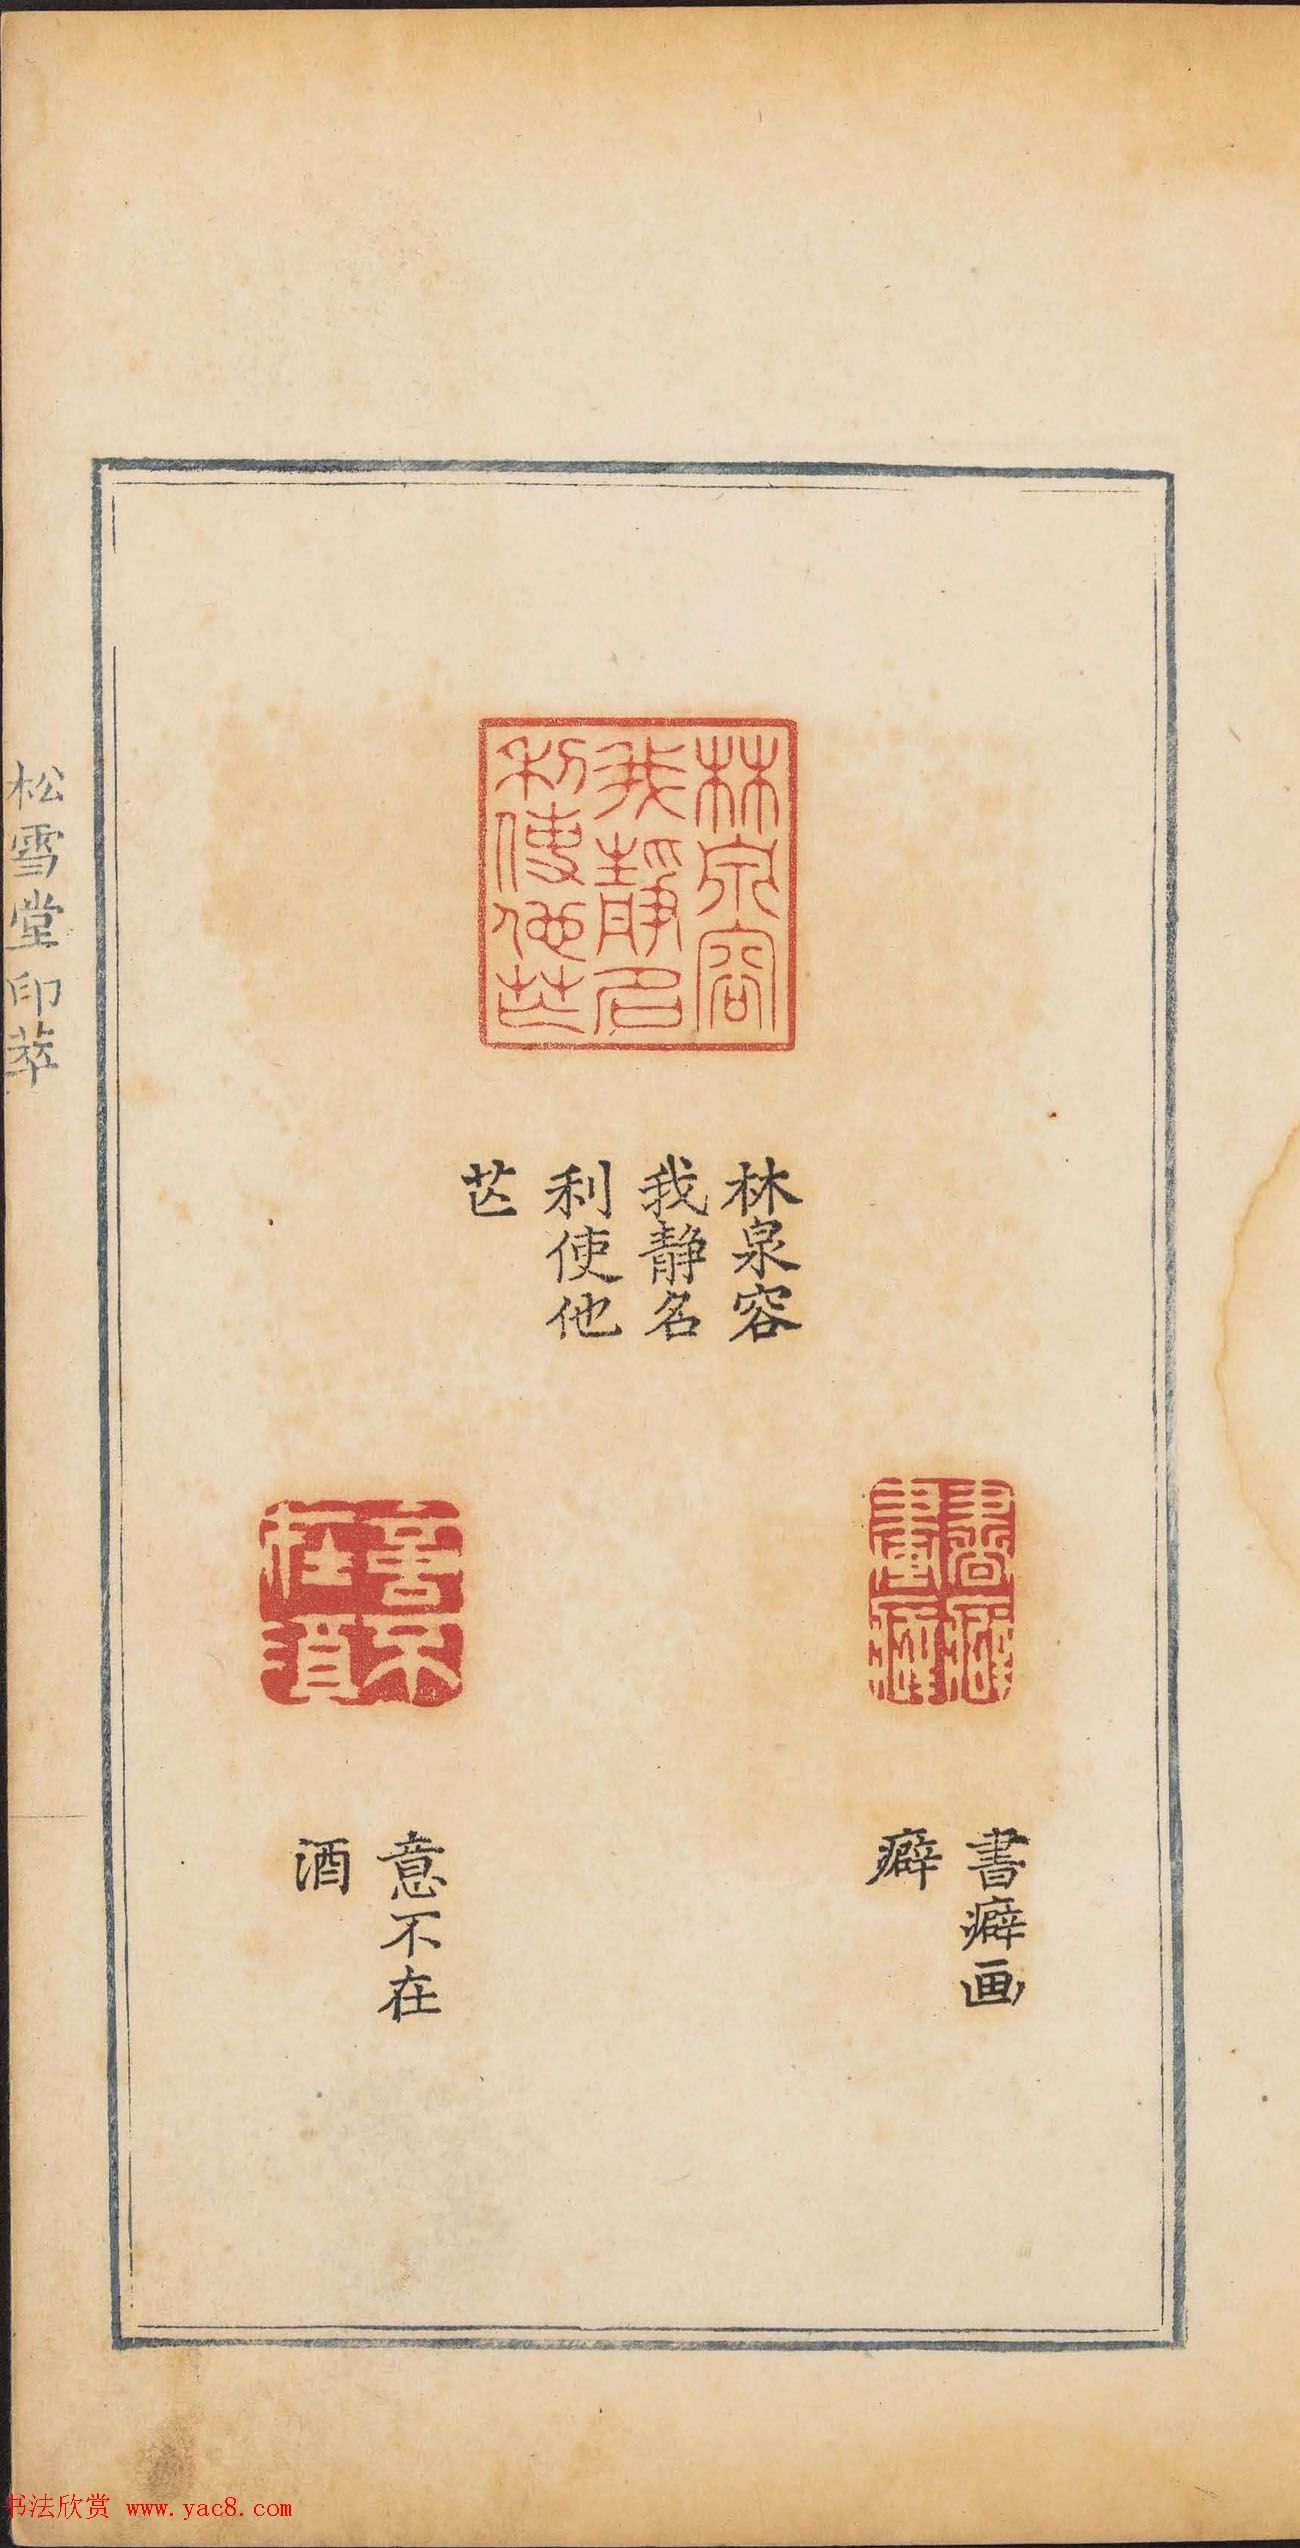 林泉容
我靜名
利使他
芒
林泉容
我静名
利使他
芒
書癖
畫癖
書癖画
癖
意不
在酒
意不在
酒
松雪堂印萃
书法欣赏 www.yac8.com